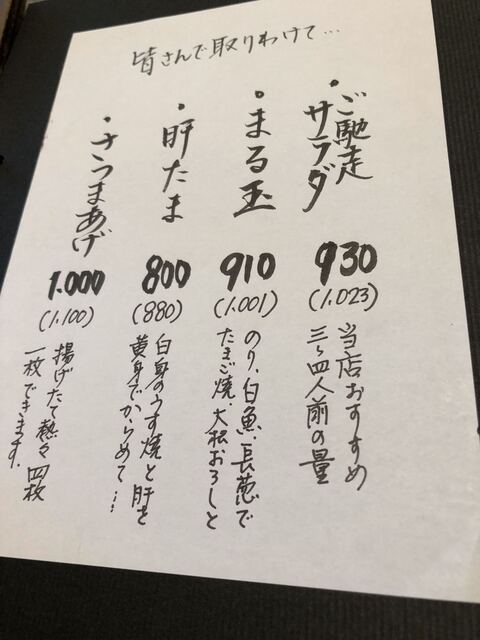 皆さんで取りわけて…
・ご馳走
サラダ
930
(1.023)
当店おすすめ
三〜四人前の量
・まる玉
910
(1.001)
のり、白魚、長葱で
たまご焼、大根おろしと
・肝たま
800
(880)
白身のうす焼と肝を
黄身でからめて…
・さつまあげ
1.000
(1.100)
揚げたて熱々 四枚
一枚できます。